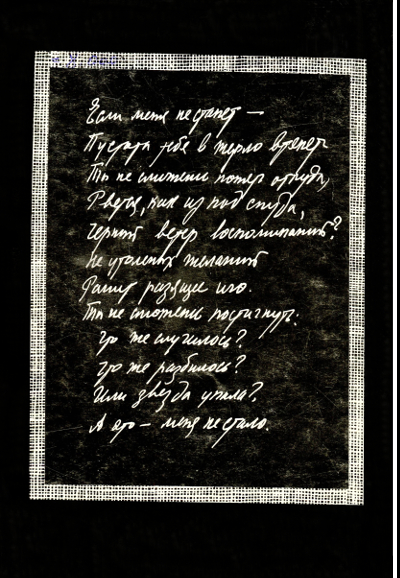 Если меня не станет —
Пустота тебе в
Ты не сможешь потом
Рвется, как из под спуда,
Черный ветер воспоминаний?
Не утоленных желаний
разящее иго.
Ты не сможешь постигнуть:
Что же случилось?
Что же разбилось?
Или звезда упала?
А это — меня не стало.